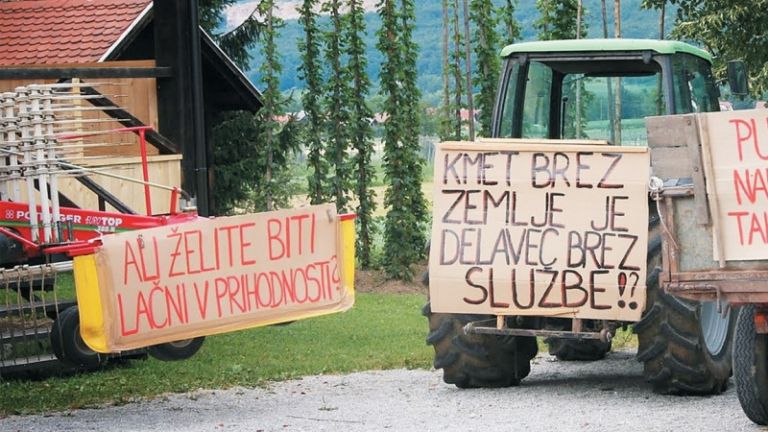 PÖTTINGER EUROTOP
ALI ŽELITE BITI
LAČNI V PRIHODNOSTI?
KMET BREZ
ZEMLJE JE
DELAVEC BREZ
SLUŽBE!?
PU
NA
TA